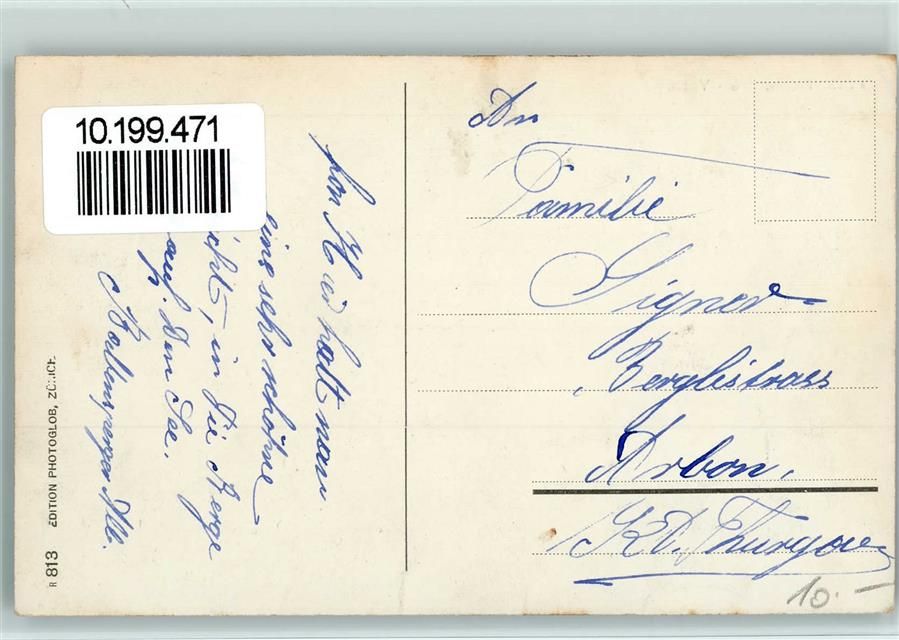 10.199.471
Von hier hatt man
eine sehr schöne
icht, in die Berge
auf den See.
An
Familie
Signer
Berglistrass
Arbon,
Kt. Thurgau
10.-
EDITION PHOTOGLOB, ZÜRICH.
R 813